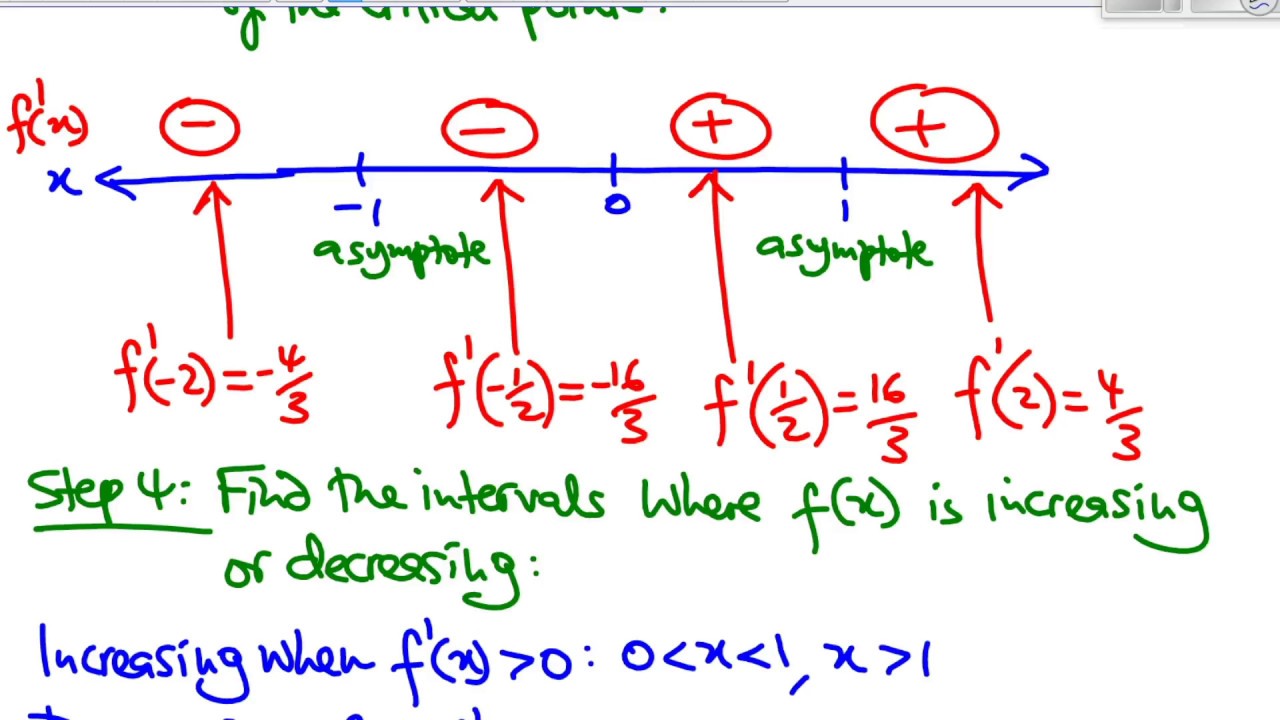 of the critical points:
f'(x) − − + +
x −1 0 1
asymptote asymptote
f'(-2) = -4/3 f'(-1/2) = -16/3 f'(1/2) = 16/3 f'(2) = 4/3
Step 4: Find the intervals where f(x) is increasing
or decreasing:
Increasing when f'(x) > 0: 0 < x < 1, x > 1